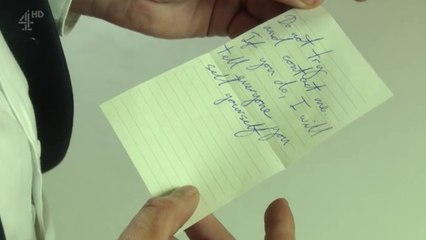 4HD
Do not try
and contact me.
If you do, I will
tell everyone you
sell yourself